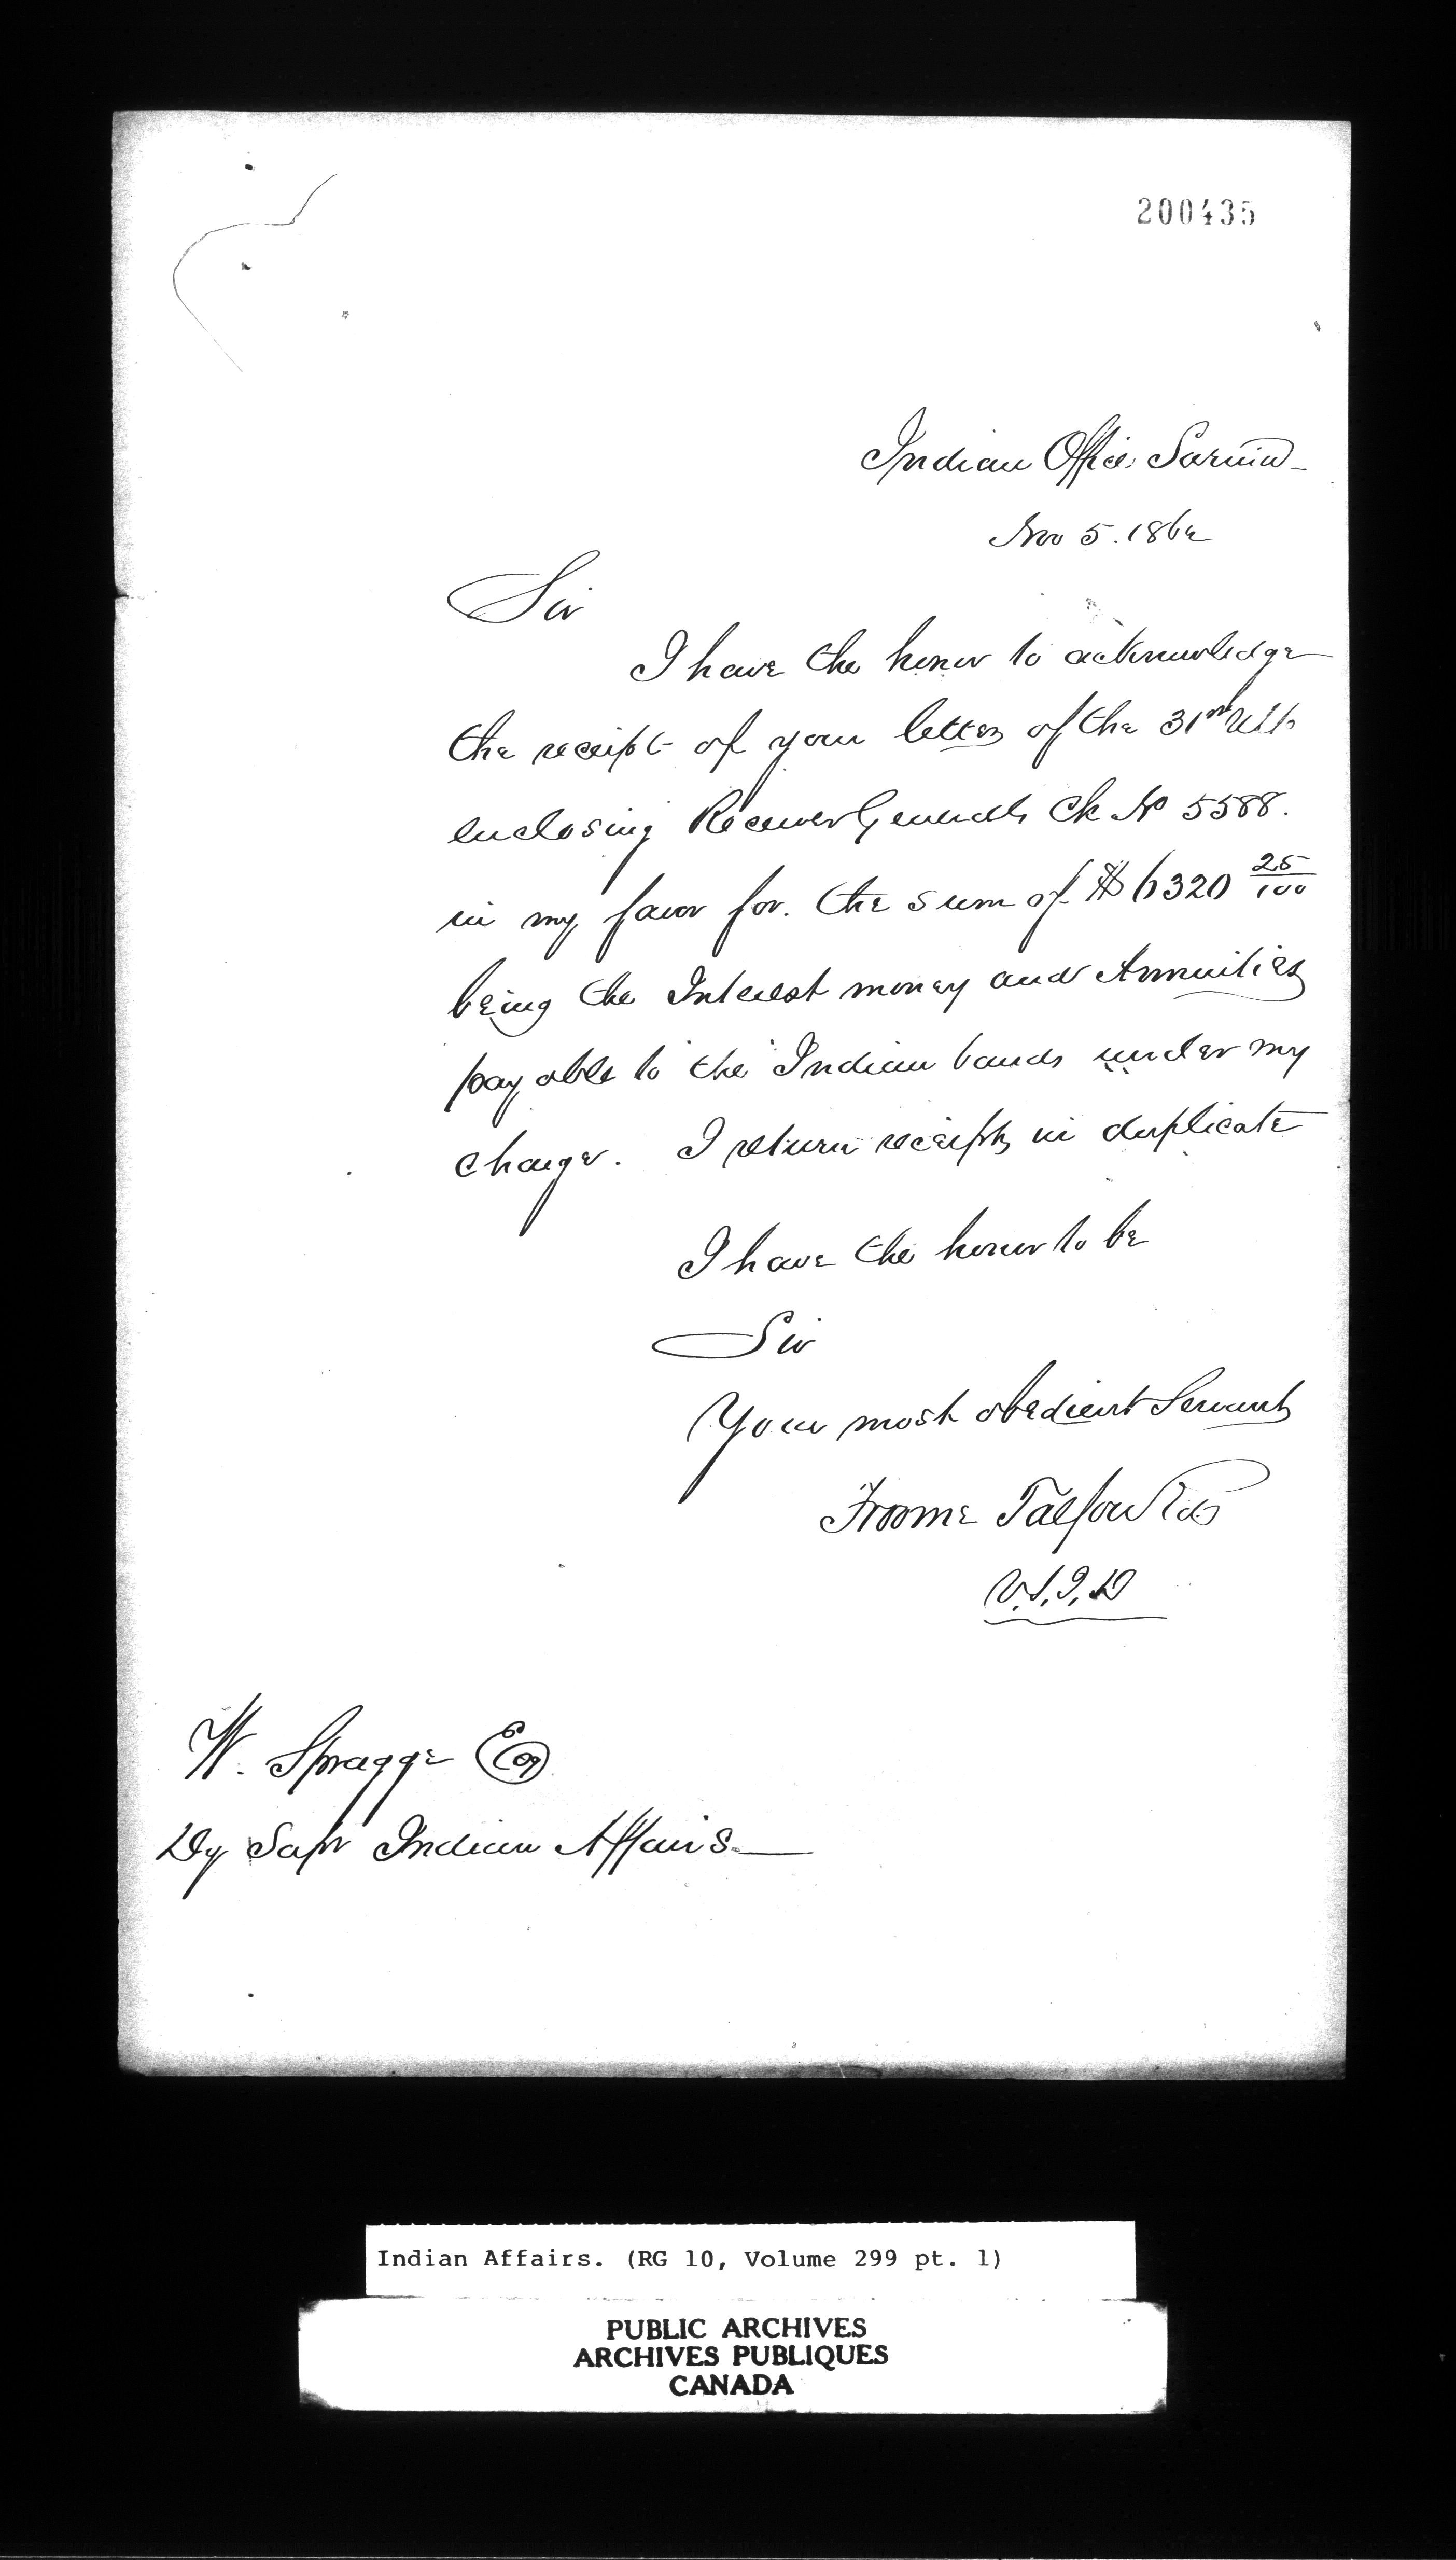 200435
Indian Office Sarnia
Nov 5. 1862
Sir
I have the honor to acknowledge
the receipt of your letter of the 31st Ult
enclosing Receiver Generals Ck No 5588.
in my favor for. the sum of $6320 25/100
being the Interest money and Annuities
payable to the Indian bands under my
charge. I return receipts in duplicate
I have the honor to be
Sir
Your most obedient Servant
Froome Talfourd
V.S.I.D
W. Spragge Esq
Dy Supt Indian Affairs
Indian Affairs. (RG 10, Volume 299 pt. 1)
PUBLIC ARCHIVES
ARCHIVES PUBLIQUES
CANADA